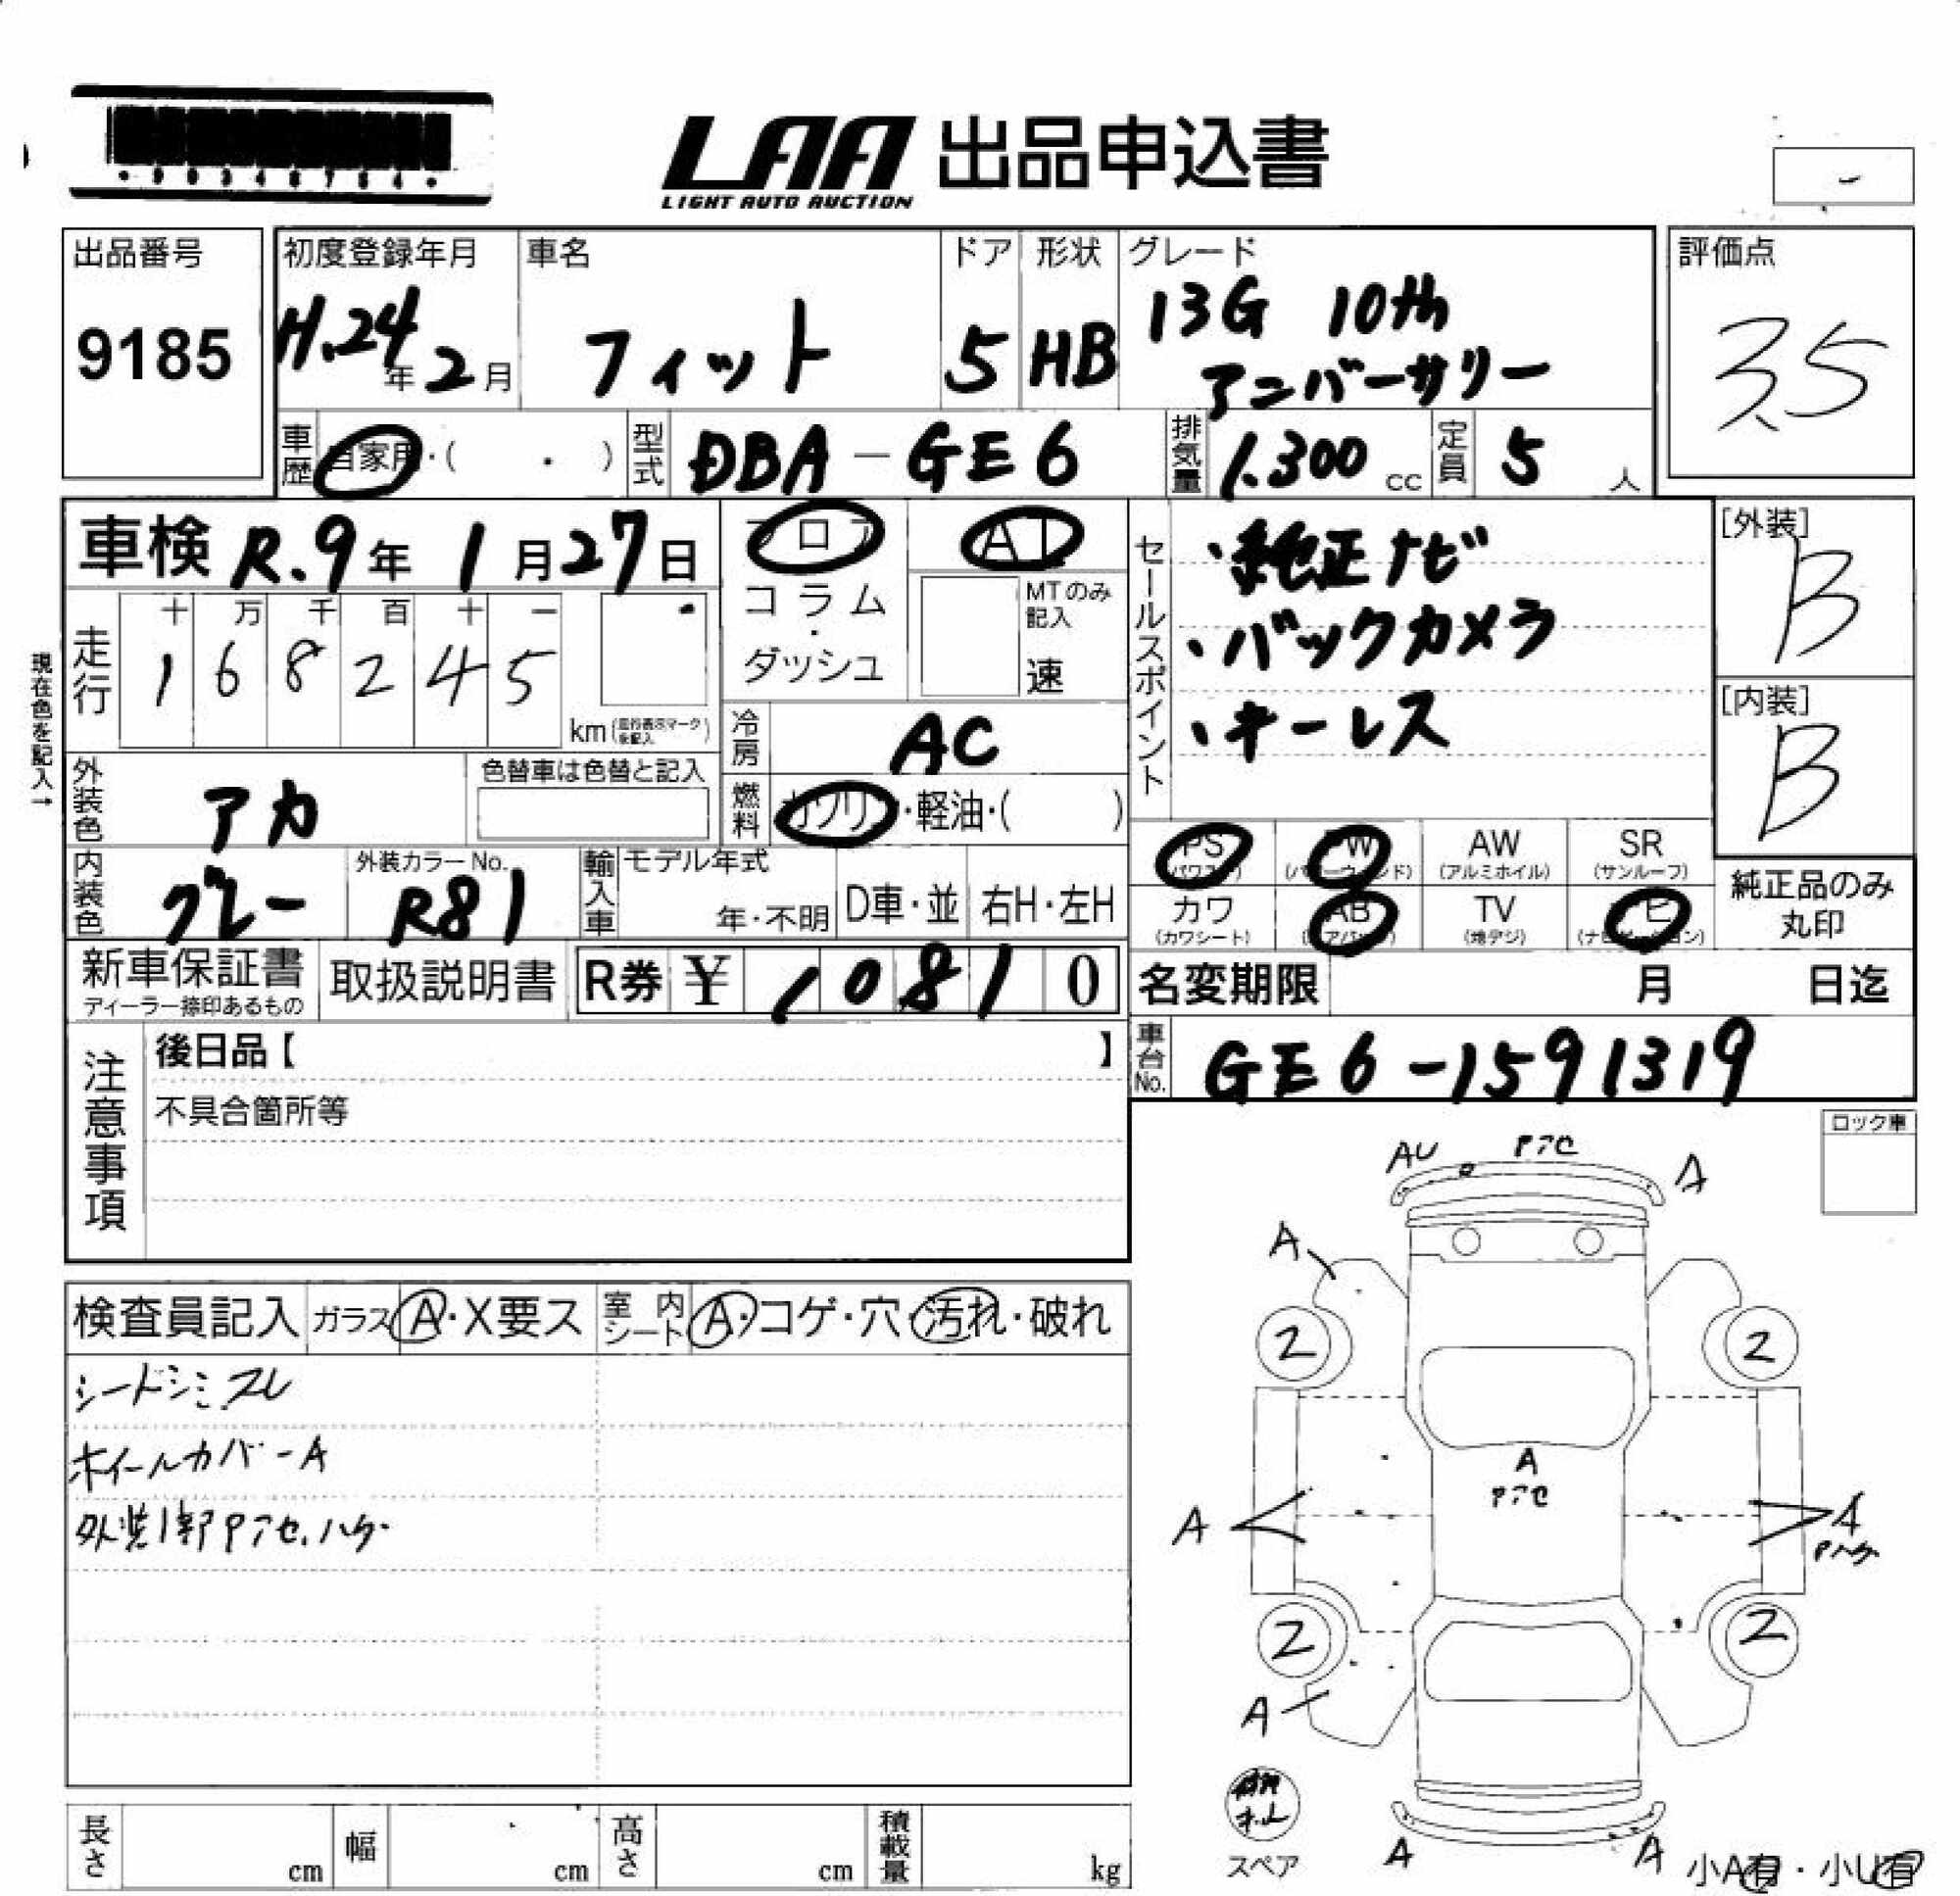 LAA 出品申込書
LIGHT AUTO AUCTION
出品番号
9185
初度登録年月
H.24年2月
車名
フィット
ドア
5
形状
HB
グレード
13G 10th
アンバーサリー
評価点
3.5
車歴
自家用・( ・ )
型式
DBA-GE6
排気量
1.300cc
定員
5人
車検 R.9年1月27日
フロア
コラム
・
ダッシュ
AT
MTのみ
記入
速
走行
十 万 千 百 十 一
1 6 8 2 4 5
km
現在色を記入→
外装色
アカ
色替車は色替と記入
冷房
AC
燃料
ガソリン・軽油・( )
内装色
グレー
外装カラーNo.
R81
輸入車
モデル年式
年・不明
D車・並
右H・左H
新車保証書
ディーラー捺印あるもの
取扱説明書
R券 ¥ 10810
セールスポイント
・純正ナビ
・バックカメラ
・キーレス
[外装]
B
[内装]
B
PS
(パワステ)
PW
(パワーウィンド)
AW
(アルミホイル)
SR
(サンルーフ)
カワ
(カワシート)
AB
(エアバッグ)
TV
(地デジ)
ナビ
(ナビゲーション)
純正品のみ
丸印
名変期限 月 日迄
車台No.
GE6-1591319
注意事項
後日品【 】
不具合箇所等
ロック車
検査員記入
ガラス A・X要ス
室内シート A・コゲ・穴・汚れ・破れ
シートシミ、スレ
ホイールカバーA
外装1部Pアセ、ハゲ
AU Pアセ A
A
2 2
A
Pアセ
A A
Pハゲ
2 2
A
スペア
A A
小A有・小U有
長さ cm
幅 cm
高さ cm
積載量 kg